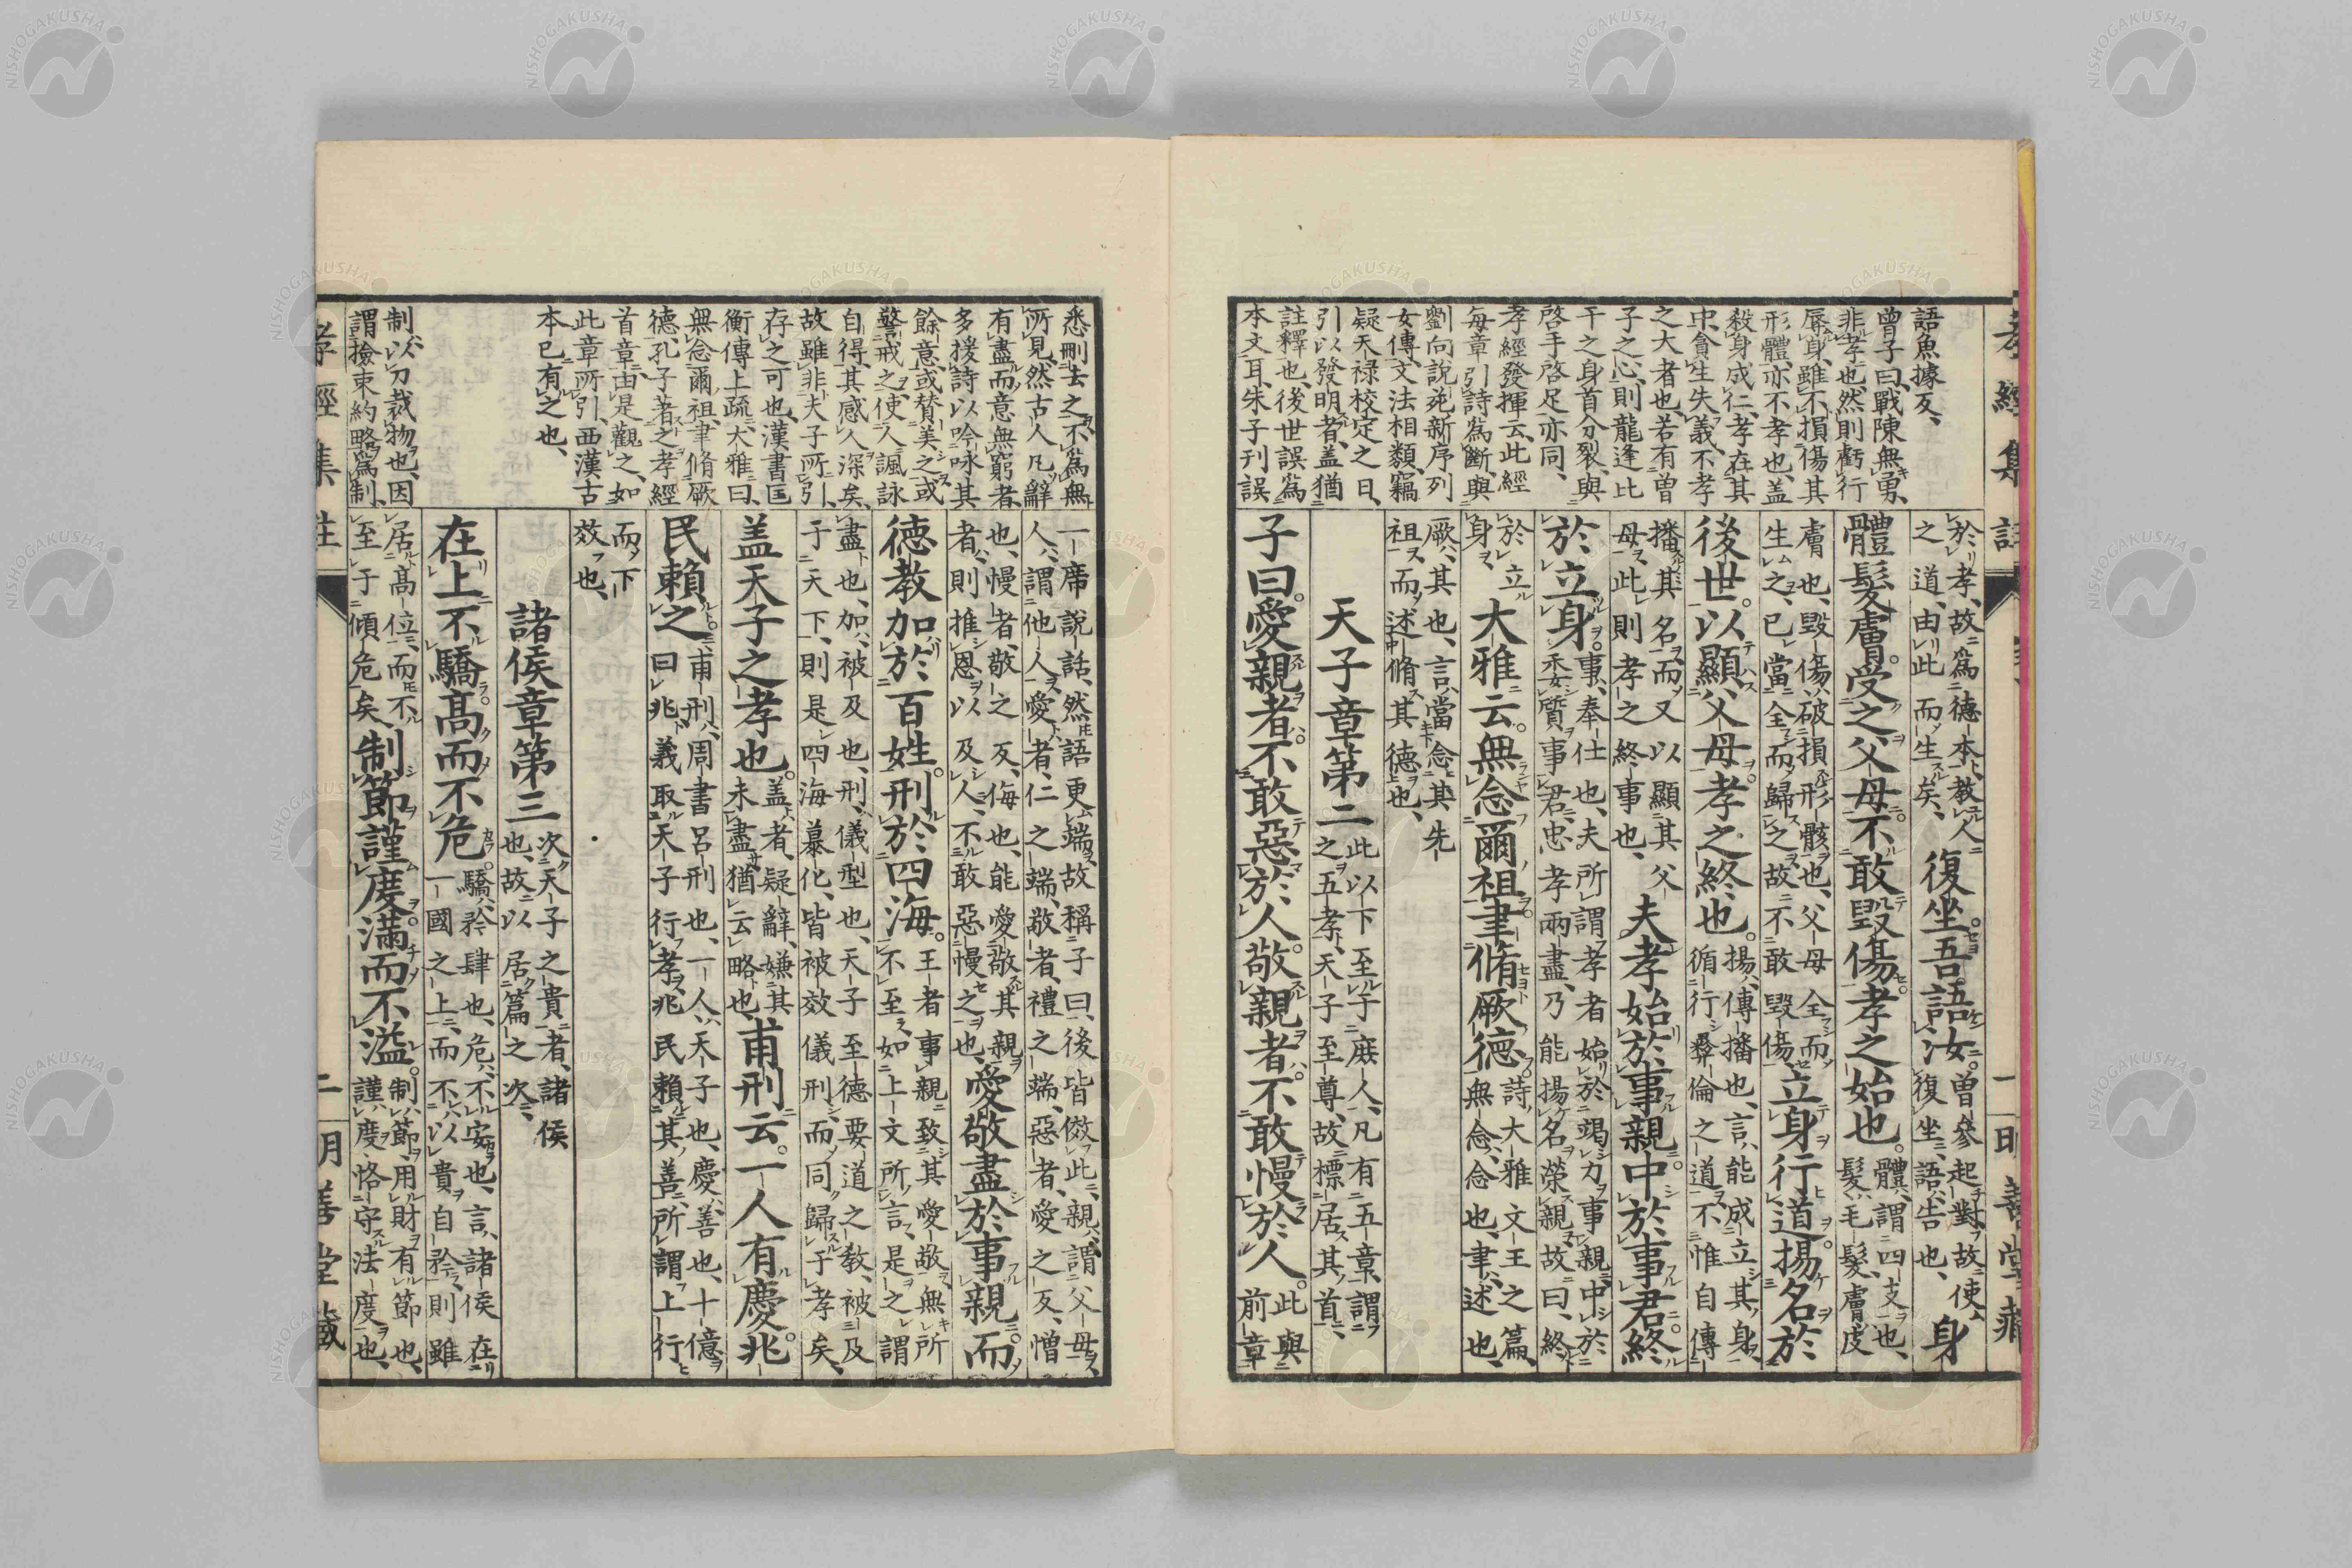 孝經集註
一
明善堂藏
語魚據反、
曾子曰、戰陳無勇、
非孝也、然則虧行
辱身、雖不損傷其
形體、亦不孝也、盖
殺身成仁、孝在其
中、貪生失義、不孝
之大者也、若有曾
子之心、則龍逢比
干之身首分裂、與
啓手啓足亦同、
孝經發揮云、此經
每章引詩爲斷、與
劉向說苑新序列
女傳、文法相類、竊
疑天祿校定之日、
引以發明者、盖猶
註釋也、後世誤爲
本文耳、朱子刊誤
於孝、故爲德本、教人
之道、由此而生矣、
復坐。吾語汝。
曾參起對、故使
復坐、語、告也、
身
體髮膚。受之父母。不敢毀傷。孝之始也。
體、謂四支也、
髮、毛髮、膚、皮
膚也、毀傷、破損形骸也、父母全而
生之、已當全而歸之、故不敢毀傷、
立身行道。揚名於
後世。以顯父母。孝之終也。
揚、傳播也、言、能成立其身、
循行彝倫之道、不惟自傳
播其名、而又以顯其父
母、此則孝之終事也、
夫孝始於事親。中於事君。終
於立身。
事、奉仕也、夫所謂孝者、始於竭力事親、中於
委質事君、忠孝兩盡、乃能揚名榮親、故曰、終
於立
身、
大雅云。無念爾祖。聿脩厥德。
詩、大雅文王之篇、
無念、念也、聿、述也、
厥、其也、言、當念其先
祖、而述脩其德也、
天子章第二
此以下至于庶人、凡有五章、謂
之五孝、天子至尊、故標居其首、
子曰。愛親者。不敢惡於人。敬親者。不敢慢於人。
此與
前章
悉刪去之、不爲無
所見、然古人凡辭
有盡而意無窮者、
多援詩以吟咏其
餘意、或賛美之、或
警戒之、使人諷詠
自得、其感人深矣、
故雖非夫子所引、
存之可也、漢書匡
衡傳上疏、大雅曰、
無念爾祖、聿脩厥
德、孔子著之孝經
首章、由是觀之、如
此章所引、西漢古
本已有之也、
制以刀裁物也、因
謂撿束約略爲制、
一席說話、然語更端、故稱子曰、後皆傚此、親、謂父母、
人、謂他人、愛者、仁之端、敬者、禮之端、惡者、愛之反、憎
也、慢者、敬之反、侮也、能愛敬其親
者、則推恩以及人、不敢惡慢之也、
愛敬盡於事親。而
德教加於百姓。刑於四海。
王者事親、致其愛敬、無所
不至、如上文所言、是之謂
盡也、加、被及也、刑、儀型也、天子至德要道之教、被及
于天下、則是四海慕化、皆被效儀刑、而同歸于孝矣、
盖天子之孝也。
盖者、疑辭、嫌其
未盡、猶云略也、
甫刑云。一人有慶。兆
民賴之。
甫刑、周書呂刑也、一人、天子也、慶、善也、十億
曰兆、義取天子行孝、兆民賴其善、所謂上行
而下
效也、
諸侯章第三
次天子之貴者、諸侯
也、故以居篇之次、
在上不驕。高而不危。
驕、矜肆也、危、不安也、言、諸侯在
一國之上、而不以貴自矜、則雖
居高位、而不
至于傾危矣、
制節謹度。滿而不溢。
制節、用財有節也、
謹度、恪守法度也、
孝經集註
二
明善堂藏